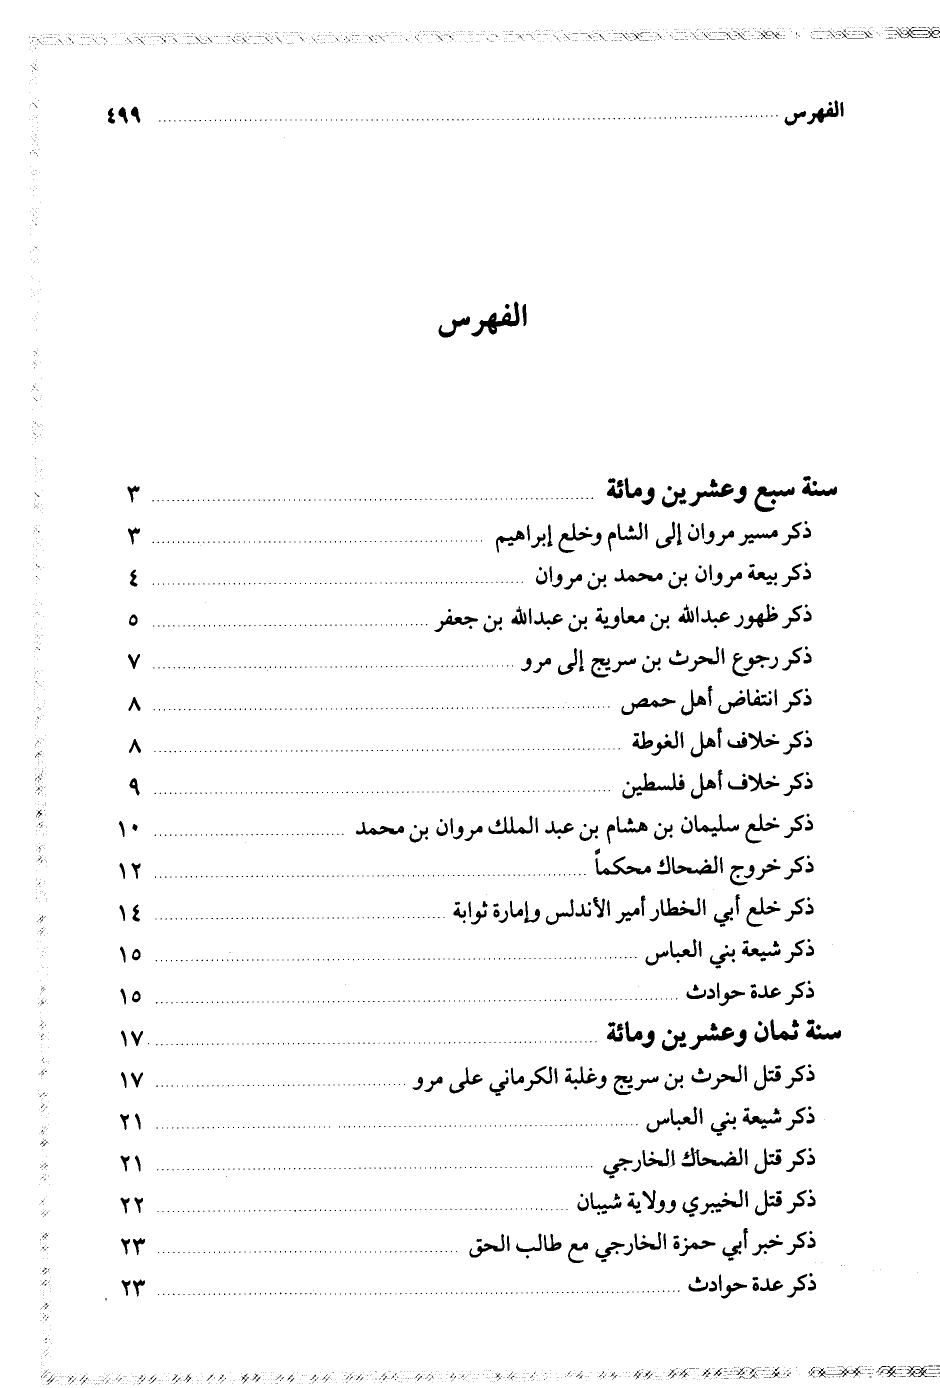 الفهرس ... ٤٩٩
الفهرس
سنة سبع وعشرين ومائة ... ٣
ذكر مسير مروان إلى الشام وخلع إبراهيم ... ٣
ذكر بيعة مروان بن محمد بن مروان ... ٤
ذكر ظهور عبدالله بن معاوية بن عبدالله بن جعفر ... ٥
ذكر رجوع الحرث بن سريج إلى مرو ... ٧
ذكر انتفاض أهل حمص ... ٨
ذكر خلاف أهل الغوطة ... ٨
ذكر خلاف أهل فلسطين ... ٩
ذكر خلع سليمان بن هشام بن عبد الملك مروان بن محمد ... ١٠
ذكر خروج الضحاك محكماً ... ١٢
ذكر خلع أبي الخطار أمير الأندلس وإمارة ثوابة ... ١٤
ذكر شيعة بني العباس ... ١٥
ذكر عدة حوادث ... ١٥
سنة ثمان وعشرين ومائة ... ١٧
ذكر قتل الحرث بن سريج وغلبة الكرماني على مرو ... ١٧
ذكر شيعة بني العباس ... ٢١
ذكر قتل الضحاك الخارجي ... ٢١
ذكر قتل الخيبري وولاية شيبان ... ٢٢
ذكر خبر أبي حمزة الخارجي مع طالب الحق ... ٢٣
ذكر عدة حوادث ... ٢٣